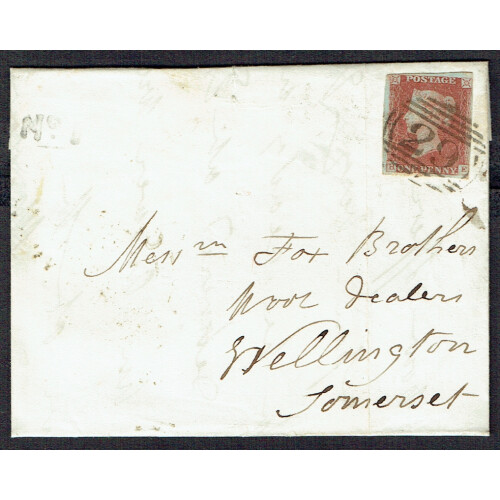 POSTAGE
ONE PENNY
No
Messrs Fox Brothers
Wool Dealers
Wellington
Somerset